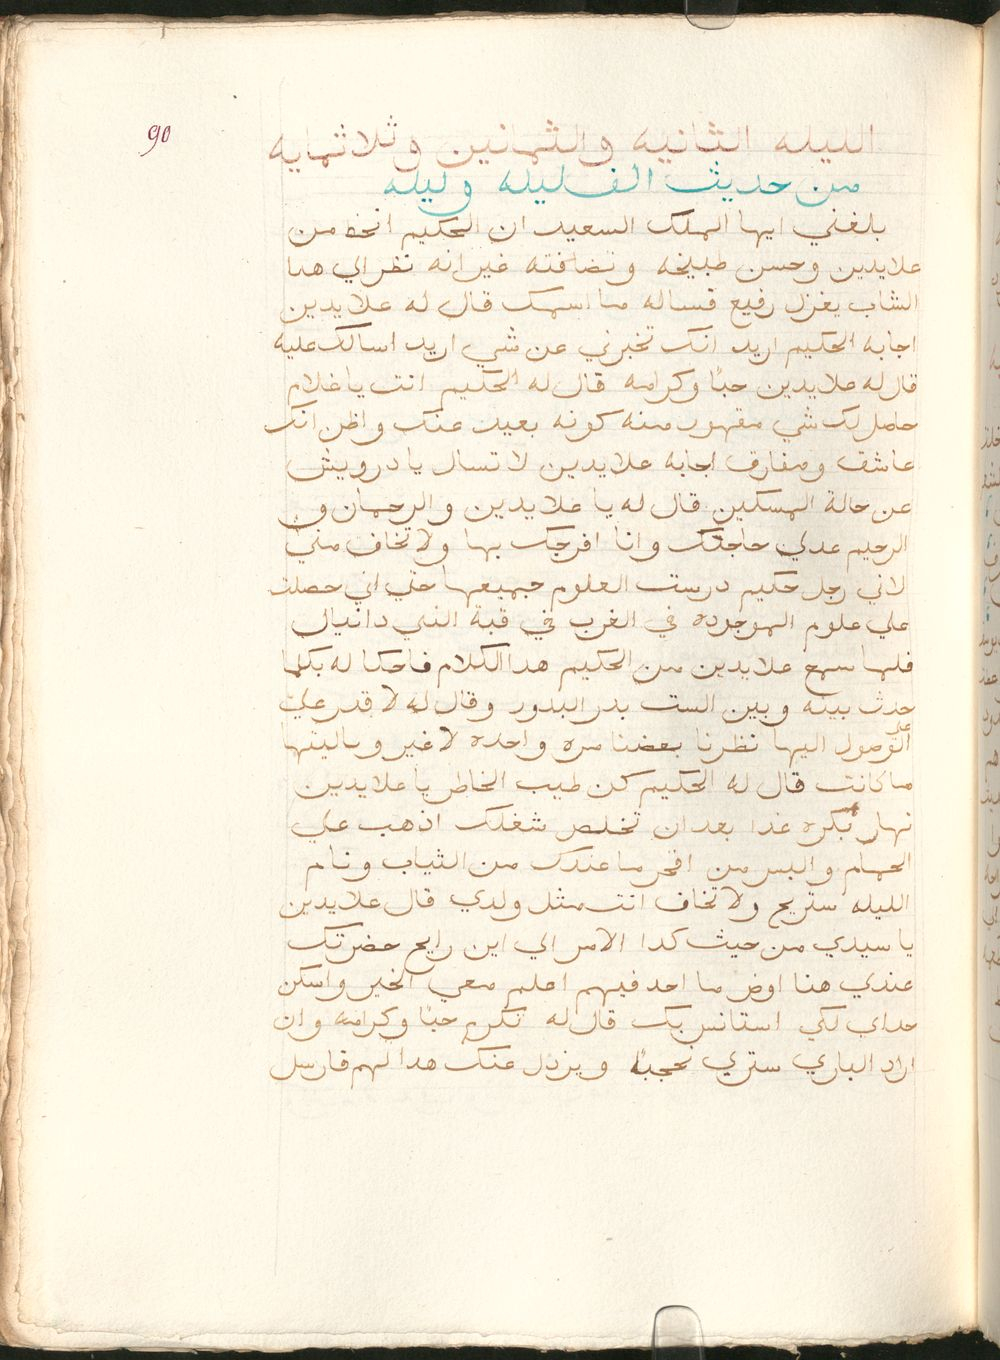 90
الليله الثانيه والثمانين وثلاثمايه
من حديث الف ليله وليله
بلغني ايها الملك السعيد ان الحكيم انحظ من
علايدين وحسن طبيخه ونضافته غير انه نظر الي هدا
الشاب يغزل رفيع فساله ما اسمك قال له علايدين
اجابه الحكيم اريد انك تخبرني عن شي اريد اسالك عليه
قال له علايدين حبًا وكرامه قال له الحكيم انت يا غلام
حاصل لك شي مقهور منه كونه بعيد عنك واظن انك
عاشق ومفارق اجابه علايدين لا تسال يا درويش
عن حالة المسكين قال له يا علايدين والرحمان و
الرحيم عدلي حاجتك وانا افرجك بها ولا تخاف مني
لاني رجل حكيم درست العلوم جميعها حتي اني حصلت
علي علوم الموجوده في الغرب في قبة النبي دانيال
فلما سمع علايدين من الحكيم هدا الكلام فاحكا له بكلما
حدث بينه وبين الست بدر البدور وقال له لا قدر علي
علي
الوصول اليها نظرنا بعضنا مره واحده لا غير وياليتها
ما كانت قال له الحكيم كن طيب الخاطر يا علايدين
نهار بكره غدا بعد ان تخلص شغلك اذهب علي
الحمام والبس من افخر ما عندك من الثياب ونام
الليله ستريح ولا تخاف انت مثل ولدي قال علايدين
يا سيدي من حيث كدا الامر الي اين رايح حضرتك
عندي هنا اوض ما احد فيهم اعلم معي الخير واسكن
حداي لكي استانس بك قال له تكرم حبًا وكرامه وان
اراد الباري ستري عجبًا ويزول عنك هدا الهم فارسل